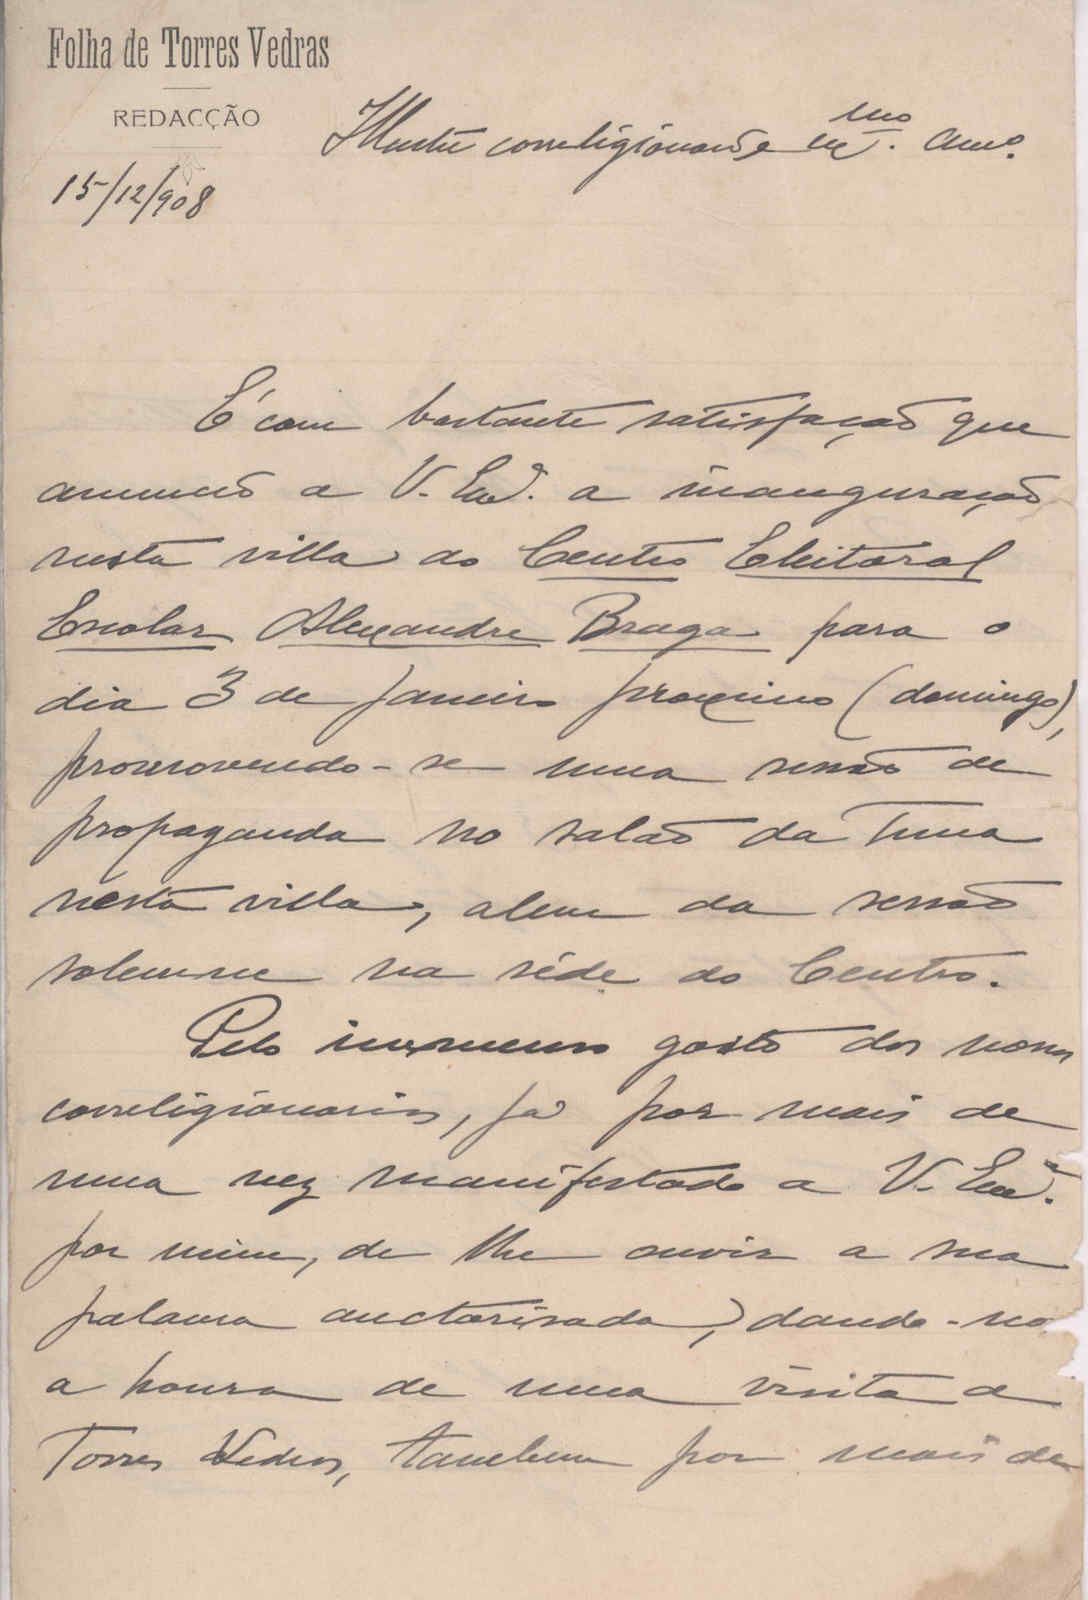 Folha de Torres Vedras
REDACÇÃO
15/12/908
Illustre correligionario e m.mo am.o
É com bastante satisfação que
annuncio a V. Ex.ª a inauguração
nesta villa do Centro Eleitoral
Escolar Alexandre Braga para o
dia 3 de janeiro proximo (domingo),
promovendo-se uma sessão de
propaganda no salão da Tuna
nesta villa, alem da sessão
solemne na séde do Centro.
Pelo immenso gosto dos nossos
correligionarios, já por mais de
uma vez manifestado a V. Ex.ª
por mim, de lhe ouvir a sua
palavra auctorisada, dando-nos
a honra de uma visita a
Torres Vedras, tambem por mais de